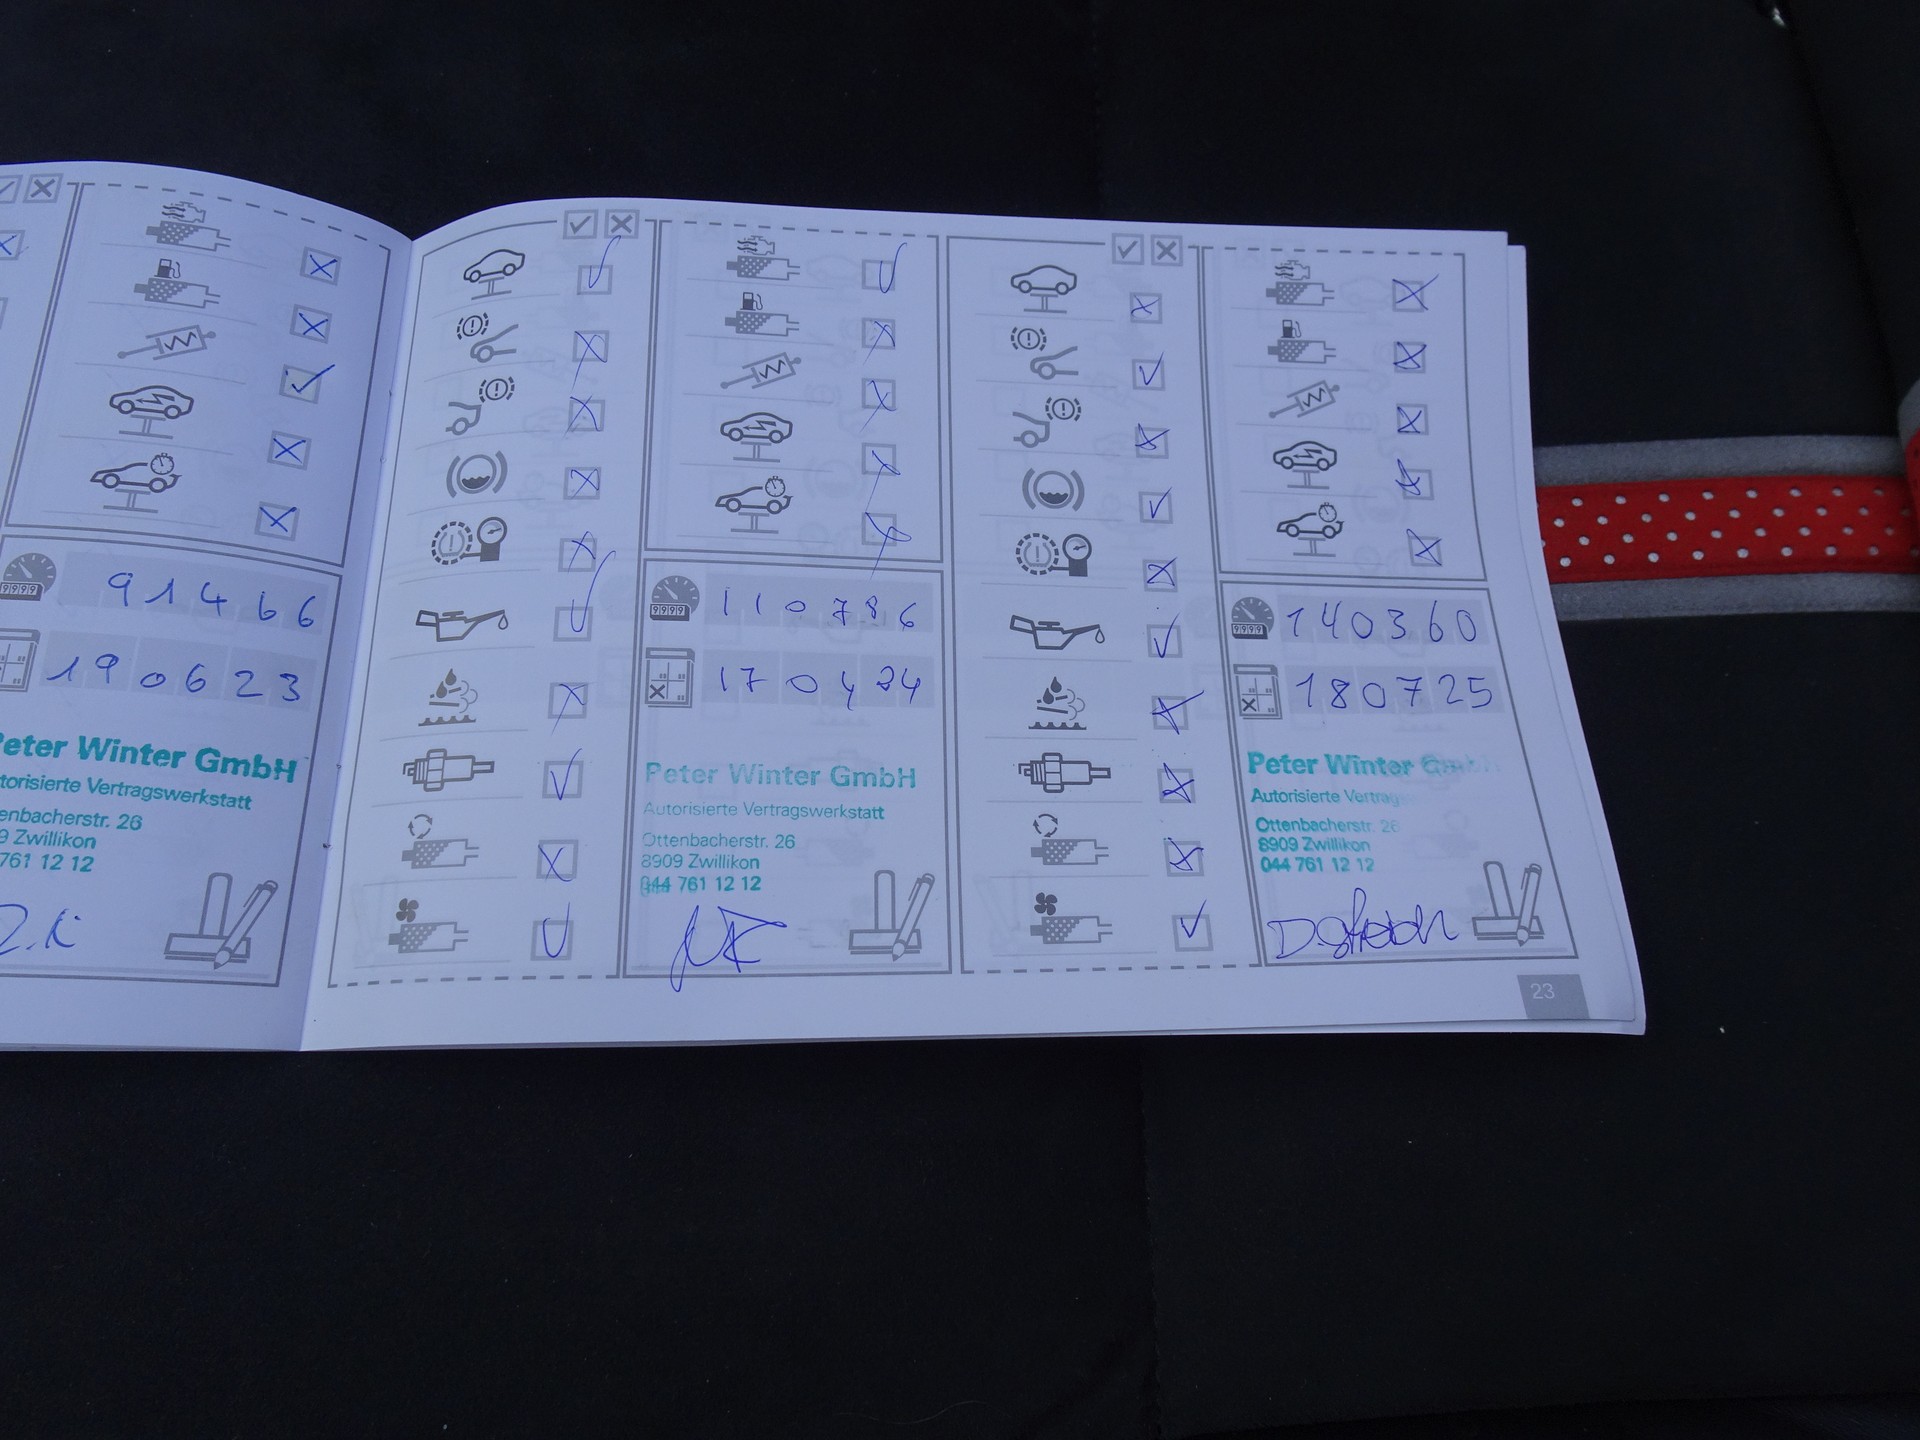 91466
190623
Peter Winter GmbH
torisierte Vertragswerkstatt
enbacherstr. 26
9 Zwillikon
761 12 12
9999
110786
170424
Peter Winter GmbH
Autorisierte Vertragswerkstatt
Ottenbacherstr. 26
8909 Zwillikon
044 761 12 12
9999
140360
180725
Peter Winter GmbH
Autorisierte Vertrag
Ottenbacherstr. 26
8909 Zwillikon
044 761 12 12
23